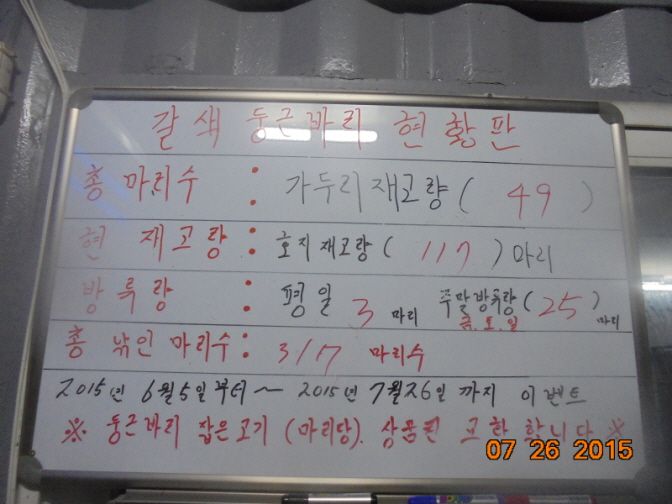 갈색 둥근바리 현황판
총 마리수 : 가두리재고량 ( 49 )
현 재고량 : 호지재고량 ( 117 ) 마리
방류량 : 평일 3 마리 주말방류량 ( 25 ) 마리
금.토.일
총 낚인 마리수 : 317 마리수
2015년 6월5일부터 ~ 2015년 7월26일 까지 이벤트
※ 둥근바리 잡은고기 (마리당). 상품권 교환 합니다 ※
07 26 2015